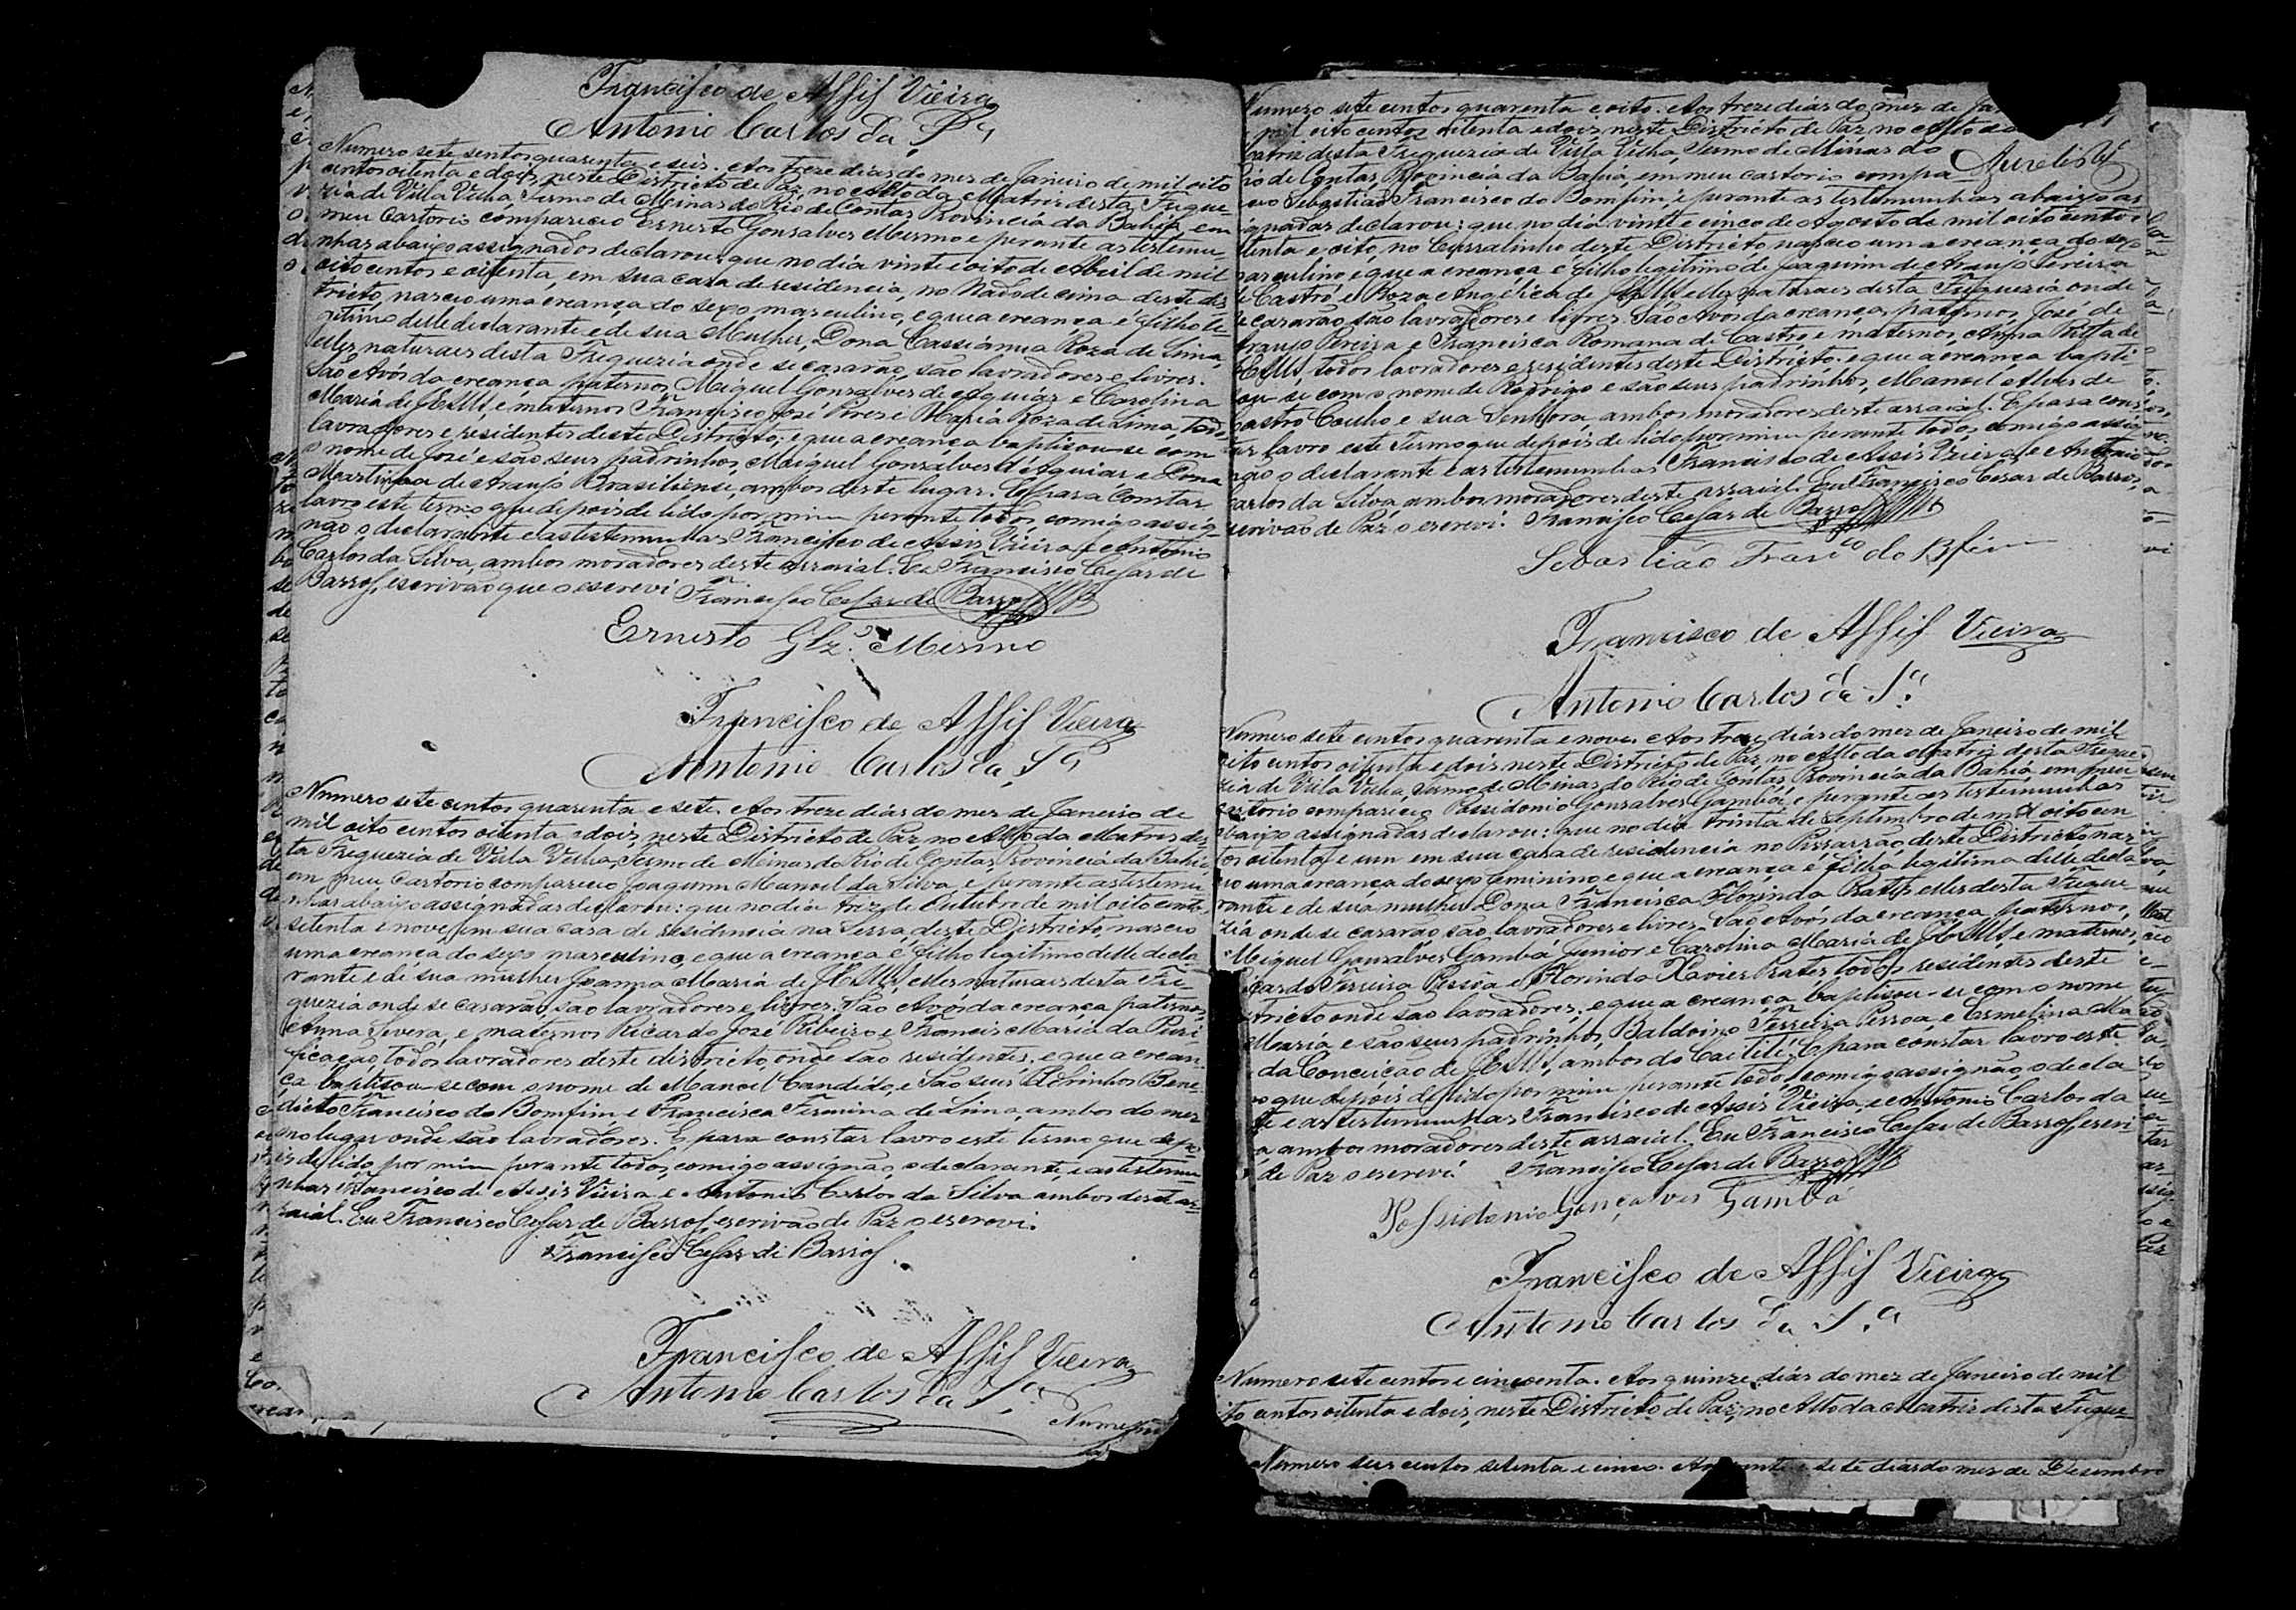 Francisco de Assis Vieira
Antonio Carlos da Sª
Numero sete sentos quarenta e seis. Aos treze dias do mez de Janeiro de mil oito
centos oitenta e dois, neste Districto de Paz, no Alto da Matriz desta Fregue-
zia de Villa Velha, Termo de Minas do Rio de Contas, Provincia da Bahia, em
meu Cartorio compareceo Ernesto Gonsalves Mesmo e perante as testemu-
nhas abaixo assignados declarou: que no dia vinte e oito de Abril de mil
oito centos e oitenta, em sua casa de residencia, no de cima deste dis
tricto, nasceo uma creança do sexo masculino, e que a creança é filho le
gitimo delle declarante e de sua Mulher, Dona Cassiánna Roza de Lima,
elles naturaes desta Freguezia onde se casarão, são lavradores e livres.
São Avós da creança, paternos, Miguel Gonsalves de Aguiar e Carolina
Maria de JESUS, e maternos Francisco José Pires e Maria Roza de Lima, todos
lavradores e residentes deste Districto; e que a creança baptisou-se com
o nome de José e são seus padrinhos, Miguel Gonsalves d'Aguiar, e Dona
Martinha de Araujo Brasiliense, ambos deste lugar. E para constar
lavro este termo que depois de lido por mim perante todos, comigo assig-
não o declarante e as testemunhas Francisco de Assis Vieira e Antonio
Carlos da Silva, ambos moradores deste arraial. Eu Francisco Cesar de
Barros, escrivão que o escrevi Francisco Cesar de Barros
Ernesto Glz. Mesmo
Francisco de Assis Vieira
Antonio Carlos da Sª
Numero sete centos quarenta e sete. Aos treze dias do mez de Janeiro de
mil oito centos oitenta e dois, neste Districto de Paz, no Alto da Matriz des-
ta Freguezia de Villa Velha, Termo de Minas do Rio de Contas, Provincia da Bahia,
em meu Cartorio compareceo Joaquim Manoel da Silva, e perante as testemu
nhas abaixo assignadas declarou: que no dia trez de Outubro de mil oito centos
setenta e nove, em sua casa de residencia na Serra, deste Districto, nasceo
uma creança do sexo masculino, e que a creança é filho legitimo delle decla
rante e de sua mulher Joanna Maria de JESUS, elles naturaes desta Fre-
guezia onde se casarão, são lavradores e livres. São Avós da creança paternos,
Anna Severa, e maternos Ricardo José Ribeiro e Francis Maria da Puri
ficação, todos lavradores deste districto, onde são residentes, e que a crean-
ça baptisou-se com o nome de Manoel Candido, e São seus Padrinhos Bene-
dicto Francisco do Bomfim e Francisca Firmina de Lima, ambos do mes
mo lugar onde são lavradores. E para constar lavro este termo que depo
is de lido por mim perante todos, comigo assignão, o declarante, e as testemu
nhas Francisco de Assis Vieira e Antonio Carlos da Silva ambos deste ar-
raial. Eu Francisco Cesar de Barros, escrivão de Paz o escrevi.
Francisco Cesar de Barros
Francisco de Assis Vieira
Antonio Carlos da Sª
Numero
Numero sete centos quarenta e oito. Aos treze dias do mez de Ja
mil oito centos oitenta e dois, neste Districto de Paz no Alto da
Matriz desta Freguezia de Villa Velha, Termo de Minas do
Rio de Contas, Provincia da Bahia, em meu Cartorio compa
receo Sebastião Francisco do Bomfim, e perante as testemunhas abaixo as
signadas declarou: que no dia vinte e cinco de Agosto de mil oito centos
setenta e oito, no Curralinho, deste Districto, nasceo uma creança do sexo
masculino, e que a creança é filho legitimo de Joaquim de Araujo Pereira
e Castro e Roza Angelica de JESUS elles naturaes desta Freguezia onde
se casarão são lavradores e livres. São Avós da creança, paternos, José de
Araujo Pereira e Francisca Romana de Castro, e maternos, Anna Rita de
JESUS, todos lavradores e residentes deste Districto; e que a creança bapti-
sou-se com o nome de Rodrigo e são seus padrinhos, Manoel Alves de
Castro Coelho e sua Senhora, ambos moradores deste arraial. E para cons
tar lavro este Termo que depois de lido por mim perante todos, comigo assig
não o declarante e as testemunhas Francisco de Assis Vieira e Antonio
Carlos da Silva, ambos moradores deste arraial. Eu Francisco Cesar de Barros,
escrivão de Paz o escrevi. Francisco Cesar de Barros
Sebastião Franco do Bfim
Francisco de Assis Vieira
Antonio Carlos da Sª
Numero sete centos quarenta e nove. Aos treze dias do mez de Janeiro de mil
oito centos oitenta e dois, neste Districto de Paz, no Alto da Matriz desta Fregue
zia de Villa Velha, Termo de Minas do Rio de Contas, Provincia da Bahia, em meu
Cartorio compareceo Possidonio Gonsalves Gambá, e perante as testemunhas
abaixo assignadas declarou: que no dia trinta de Septembro de mil oito cen
tos oitenta e um em sua casa de residencia no Pissarrão, deste Districto, nas
ceo uma creança do sexo feminino e que a creança é filha legitima delle decla
rante e de sua mulher Dona Francisca Florinda Prates, elles desta Fregue
zia onde se casarão são lavradores e livres. São Avós da creança, paternos,
Miguel Gonsalves Gambá Junior e Carolina Maria de JESUS, e maternos,
Ricardo Ferreira Pessôa e Florinda Xavier Prates, todos residentes deste
Districto onde são lavradores; e que a creança baptisou-se com o nome
Maria e são seus padrinhos, Baldoino Ferreira Pessoa e Ermelina Ma
da Conceição de JESUS, ambos do Caetité. E para constar lavro este
mo que depois de lido por mim perante todos, comigo assignão, o decla
te e as testemunhas Francisco de Assis Vieira, e Antonio Carlos da
a ambos moradores deste arraial. Eu Francisco Cesar de Barros escri
de Paz o escrevi Francisco Cesar de Barros
Possidonio Gonçalves Gambá
Francisco de Assis Vieira
Antonio Carlos da Sª
Numero sete centos e cincoenta. Aos quinze dias do mez de Janeiro de mil
oito centos oitenta e dois, neste Districto de Paz, no Alto da Matriz desta Fregue-
Numero seis centos setenta e cinco. Aos vinte e sete dias do mez de Desembro